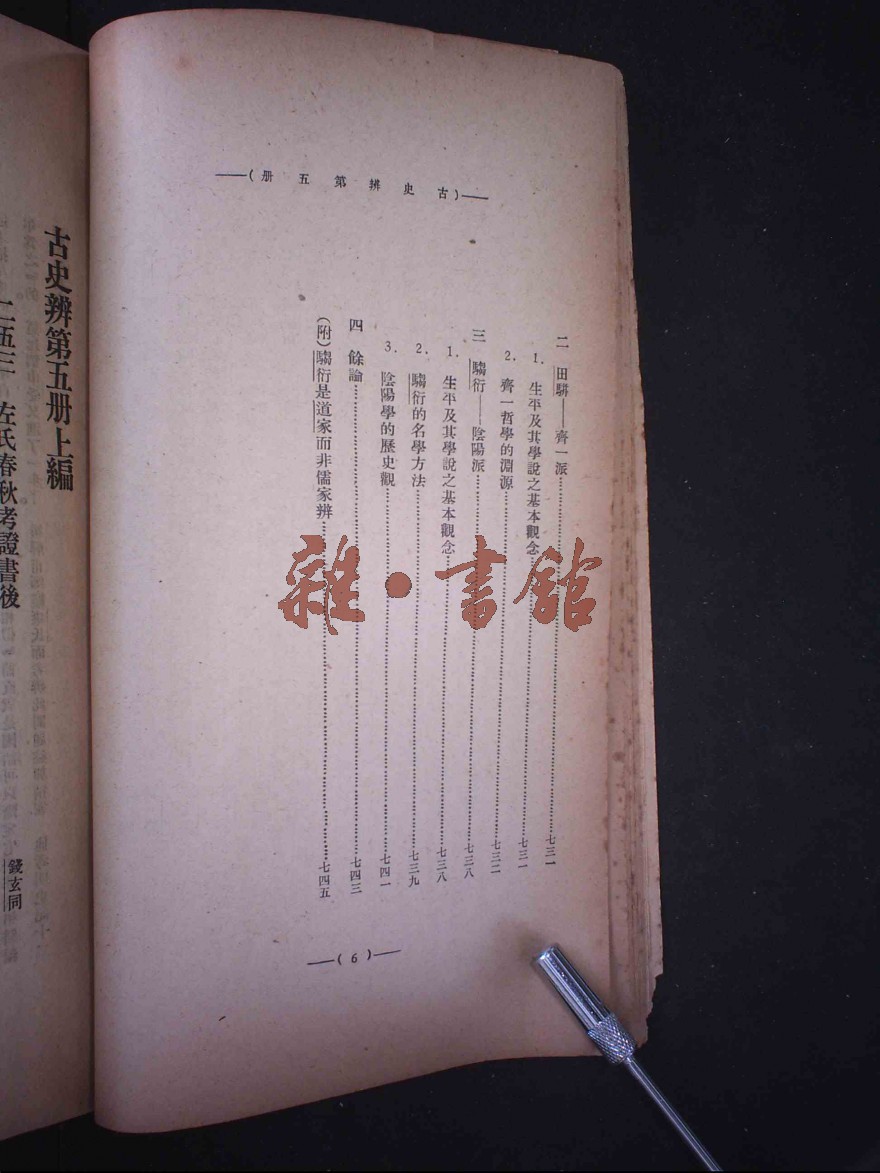 ——(古史辨第五册)——
二 田駢——齊一派……七三一
1. 生平及其學說之基本觀念……七三一
2. 齊一哲學的淵源……七三二
三 騶衍——陰陽派……七三八
1. 生平及其學說之基本觀念……七三八
2. 騶衍的名學方法……七三九
3. 陰陽學的歷史觀……七四一
四 餘論……七四三
(附)騶衍是道家而非儒家辨……七四五
——( 6 )——
古史辨第五册上編
二五三 左氏春秋考證書後
錢玄同
雜·書館